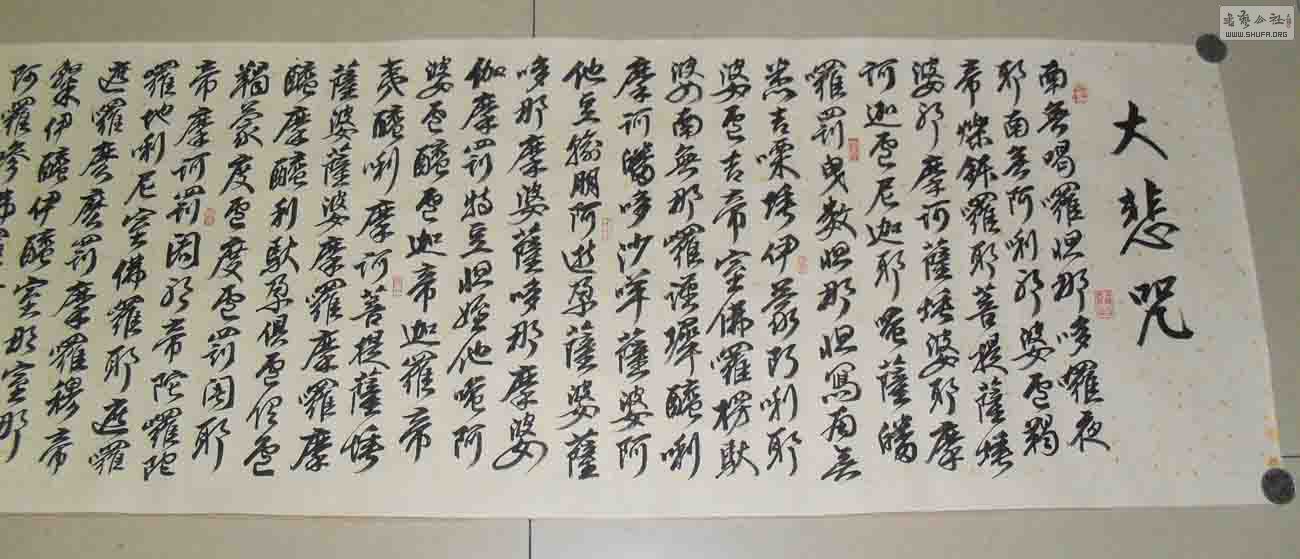 大悲咒
南無喝囉怛那哆囉夜
耶南無阿唎耶婆盧羯
帝爍鉢囉耶菩提薩埵
婆耶摩訶薩埵婆耶摩
訶迦盧尼迦耶唵薩皤
囉罰曳數怛那怛寫南無
悉吉嘌埵伊蒙阿唎耶
婆盧吉帝室佛囉楞馱
婆南無那囉謹墀醯唎
摩訶皤哆沙咩薩婆阿
他豆輸朋阿逝孕薩婆薩
哆那摩婆薩哆那摩婆
伽摩罰特豆怛姪他唵阿
婆盧醯盧迦帝迦羅帝
夷醯唎摩訶菩提薩埵
薩婆薩婆摩囉摩囉摩
醯摩醯利馱孕俱盧俱盧
羯蒙度盧度盧罰闍耶
帝摩訶罰闍耶帝陀囉陀
囉地唎尼室佛囉耶遮囉
遮囉麼麼罰摩囉穆帝
隸伊醯伊醯室那室那
阿囉嘇佛囉
WWW.SHUFA.ORG